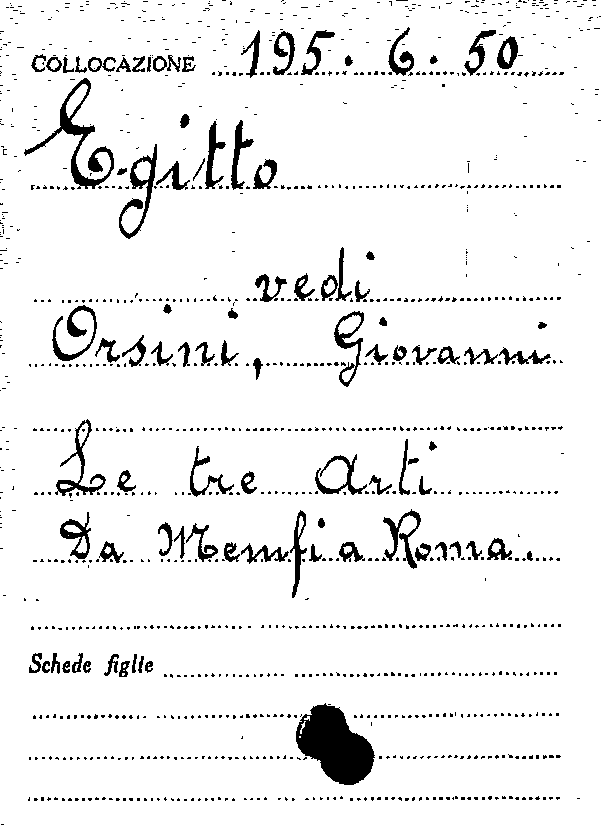 COLLOCAZIONE 195.6.50
Egitto
vedi
Orsini, Giovanni
Le tre arti
Da Memfi a Roma.
Schede figlie